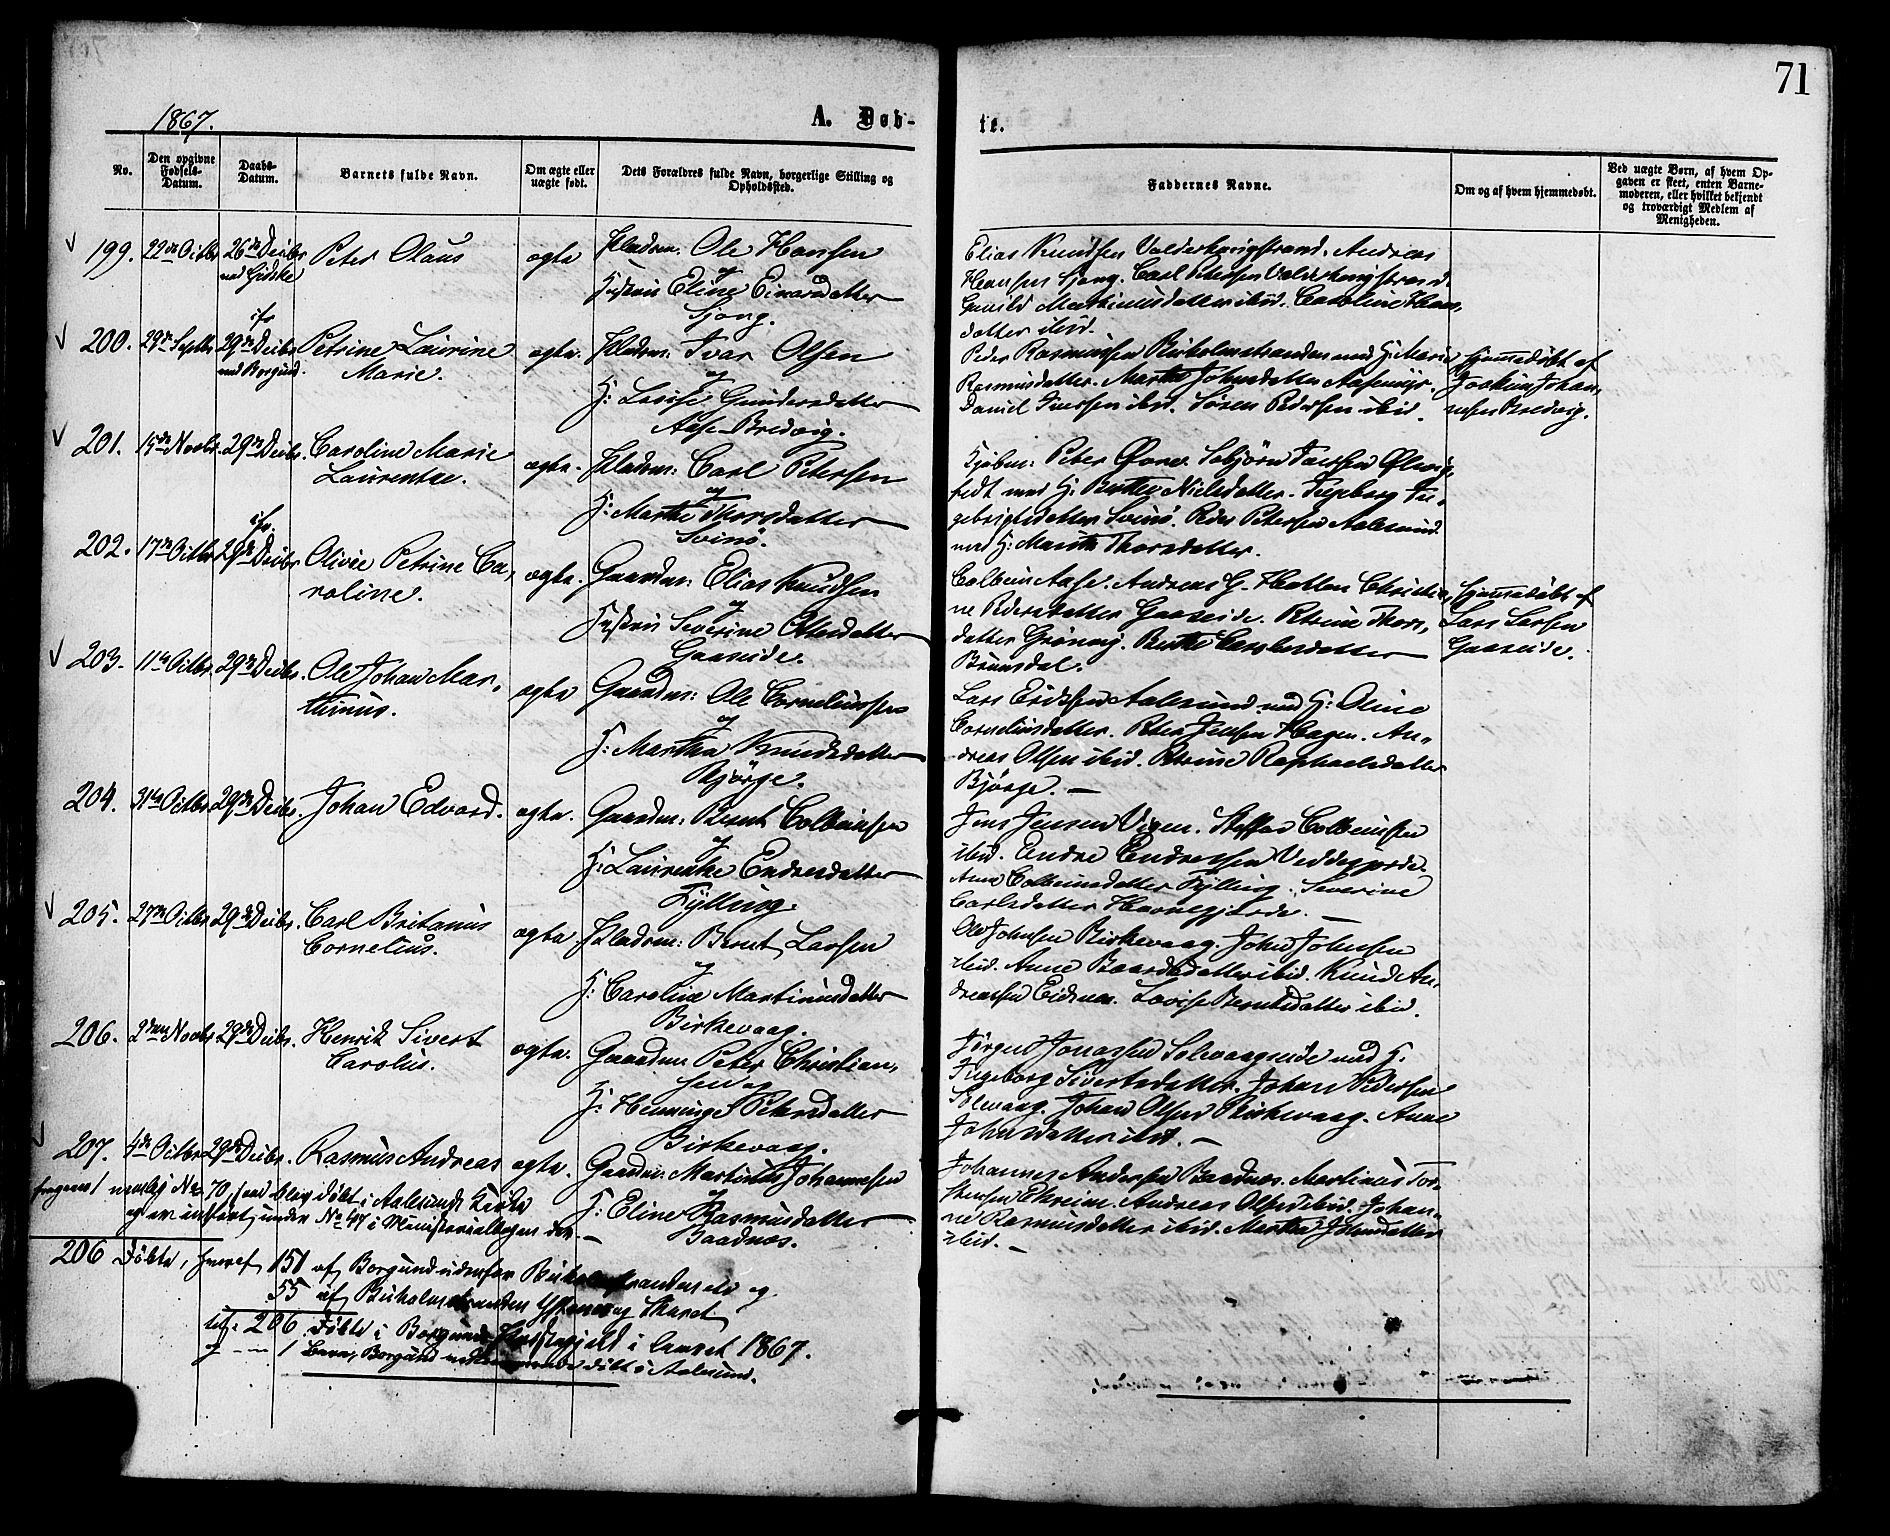 71
1867.
A. Døb-
te.
No.
Den opgivne
Fødsels-
Datum.
Daabs-
Datum.
Barnets fulde Navn.
Om ægte eller
uægte født.
Dets Forældres fulde Navn, borgerlige Stilling og
Opholdssted.
Faddernes Navne.
Om og af hvem hjemmedøbt.
Ved uægte Børn, af hvem Op-
gaven er skeet, enten Barne-
moderen, eller hvilket bekjendt
og troværdigt Medlem af
Menigheden.
199. 22de Octbr 26de Decbr Peter Olaus ægte Pladsm: Ole Hansen
ved Gidske
og
Eline Einarsdatter
Gjong.
Elias Knudsen Valderhougstrand. Andreas
Hansen Gjong. Carl Petersen Valderhougstrand.
Gunild Martinusdatter ibid. Caroline Hans-
datter ibid.
200. 29de Septbr 29de Decbr Petrine Laurine ægte. Pladsm: Ivar Olsen
Marie.
ved Borgund.
og
H: Lovise Gundersdatter
Aase-Bredvig.
Peder Rasmussen Buholmstranden med H: Marie
Rasmusdatter. Marthe Johnsdatter Aasemyr.
Daniel ibid. Søren Pedersen ibid.
Hjemmedøbt af
Joakim Johan-
nesen Bredvig.
201. 15de Novbr. 29de Decbr. Caroline Marie ægte. Pladsm: Carl Petersen
Laurentze.
og
H: Marthe Thorsdatter
Svinø.
Peter
med H: Berthe Nielsdatter. Ingeborg In-
gebrigtsdatter Svinø. Peder Petersen Aalesund
med H: Marith Thorsdatter.
202. 17de Octbr 29de Decbr Olivie Petrine Ca- ægte. Gaardm: Elias Knudsen
roline.
og
Severine Ottersdatter
Gaaseide.
Colbein Aase. Andreas G. Hatlen Christia-
ne Pedersdatter Gaaseide. Petrine Thors-
datter Grønvig. Berthe Carolusdatter
Brunsdal.
Hjemmedøbt af
Lars Larsen
Gaaseide.
203. 11te Octbr. 29de Decbr. Ole Johan Mar- ægte Gaardm: Ole Corneliussen
thinus.
og
H: Martha Knudsdatter
Bjørge.
Lars Eriksen Aalesund med H: Oline
Corneliusdatter. Peter Jensen Hagen. An-
dreas Olsen ibid. Petrine Raphaelsdatter
Bjørge.
204. 31te Octbr 29de Decbr. Johan Edvard. ægte. Gaardm: Bernt Colbeinsen
og
H: Laurentze Endresdatter
Fylling.
Jens Jensen Vigen. Steffen Colbeinsen
ibid. Endre Endresen Veddegjærde.
Ane Colbeinsdatter Fylling. Severine
Carlsdatter Havnegjærde.
205. 27de Octbr 29de Decbr. Carl Britanus ægte Pladsm: Bernt Larsen
Cornelius.
og
H: Caroline Martinusdatter
Birkevaag.
Ole Johnsen Birkevaag. John Johnsen
ibid. Anne Baardsdatter ibid. Knud An-
dreassen Eidsnes. Lovise Berntsdatter ibid.
206. 2den Novbr 29de Decbr. Henrik Sivert ægte. Gaardm: Peter Christian-
Carolus.
sen og
H: Henninge Petersdatter
Birkevaag.
Jørgen Jonassen Solevaagseide med H:
Ingeborg Sivertsdatter. Johan Pedersen
Solevaag. Johan Olsen Birkevaag. Anne
Johnsdatter ibid.
207. 4de Octbr 29de Decbr. Rasmus Andreas ægte. Gaardm: Martinus Johannesen
og
H: Eline Rasmusdatter
Baadnæs.
Johannes Andersen Baadnæs. Martinus Tor-
stensen Ekreim. Andreas Olsen ibid. Johan-
ne Rasmusdatter ibid. Martha Johnsdatter
ibid.
1 nemlig No. 70, som blev døbt i Aalesunds Kirke
og er indført under No. 47 i Ministerialbogen der.
206 Døbte, hvoraf 151 af Borgund udenfor Buholmstrandens og
55 af Buholmstranden og Skaret
206 Døbte i Borgunds Præstegjeld i Aaret 1867.
1 Barn, Borgund døbt i Aalesund.